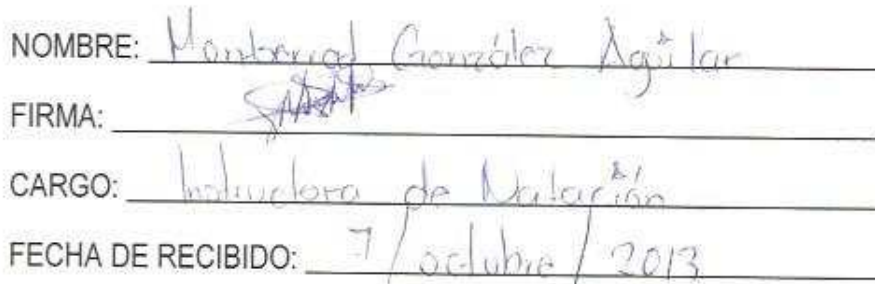 NOMBRE: Monserrat González Aguilar
FIRMA:
CARGO: Instructora de Natación
FECHA DE RECIBIDO: 7/octubre/2013